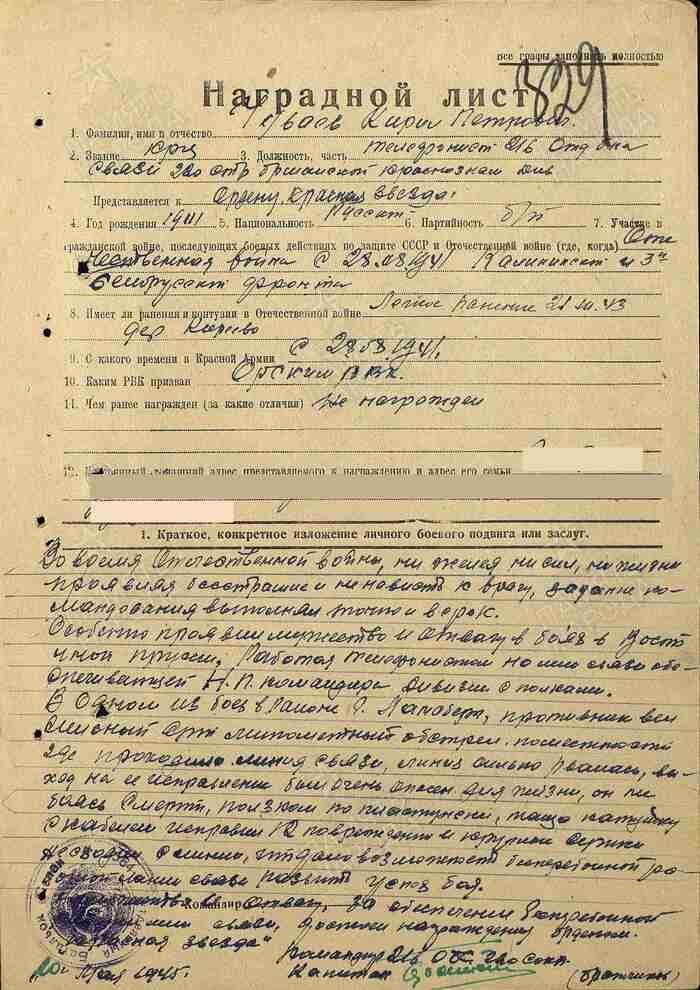 все графы заполнять полностью
829
Наградной лист
1. Фамилия, имя и отчество Петрович
2. Звание 3. Должность, часть телефонист 216 Отд б-на
связи 220 стр Оршанской краснознам див
Представляется к Ордену "Красная звезда"
4. Год рождения 1911 5. Национальность Русский 6. Партийность б/п 7. Участие в
гражданской войне, последующих боевых действиях по защите СССР и Отечественной войне (где, когда) Оте
чественная война с 28.08.1941 Калининский и 3й
Белорусский фронта
8. Имеет ли ранения и контузии в Отечественной войне Легкое ранение 43
дер
9. С какого времени в Красной Армии с 28.08.1941.
10. Каким РВК призван Орским РВК.
11. Чем ранее награжден (за какие отличия) Не награжден
12. домашний адрес представляемого к награждению и адрес его семьи
1. Краткое, конкретное изложение личного боевого подвига или заслуг.
Во время Отечественной войны, не жалея ни сил, ни жизни
проявляя бесстрашие и ненависть к врагу, задание ко-
мандования выполнял точно и в срок.
Особенно проявил мужество и отвагу в боях в Восто
чной Прусии. Работая телефонистом на линии связи обе
спечивающей Н.П. командира дивизии с полками.
В одном из боев в районе г. противник вел
сильный арт минометный обстрел по местности
где проходила линия связи, линия сильно рвалась, вы-
ход на ее исправление был очень опасен для жизни, он не
боясь смерти, ползком по пластунски, таща катушку
с кабелем исправил 12 повреждений и сутки
не сходил с линии, что дало возможность бесперебойной ра-
связи развить успех боя.
и отвагу, за обеспечение бесперебойной
связи, достоин награждения орденом
"Красная звезда"
Командир
Командир 216 ОБС 220 сокп.
Капитан
10 Мая 1945г.